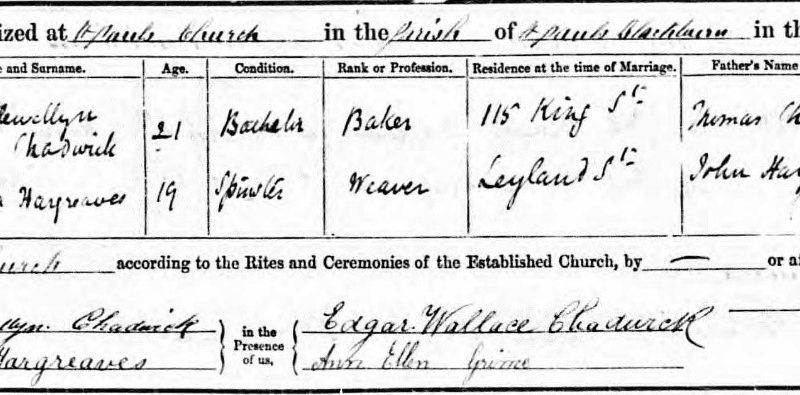 ized at St Pauls Church in the Parish of St Pauls Blackburn in th
e and Surname. Age. Condition. Rank or Profession. Residence at the time of Marriage. Father's Name
lewellyn
Chadwick 21 Bachelor Baker 115 King St Thomas Ch
Hargreaves 19 Spinster Weaver Leyland St John Har
urch according to the Rites and Ceremonies of the Established Church, by — or af
llyn. Chadwick in the Edgar Wallace Chadwick
Presence
Hargreaves of us, Ann Ellen Grime